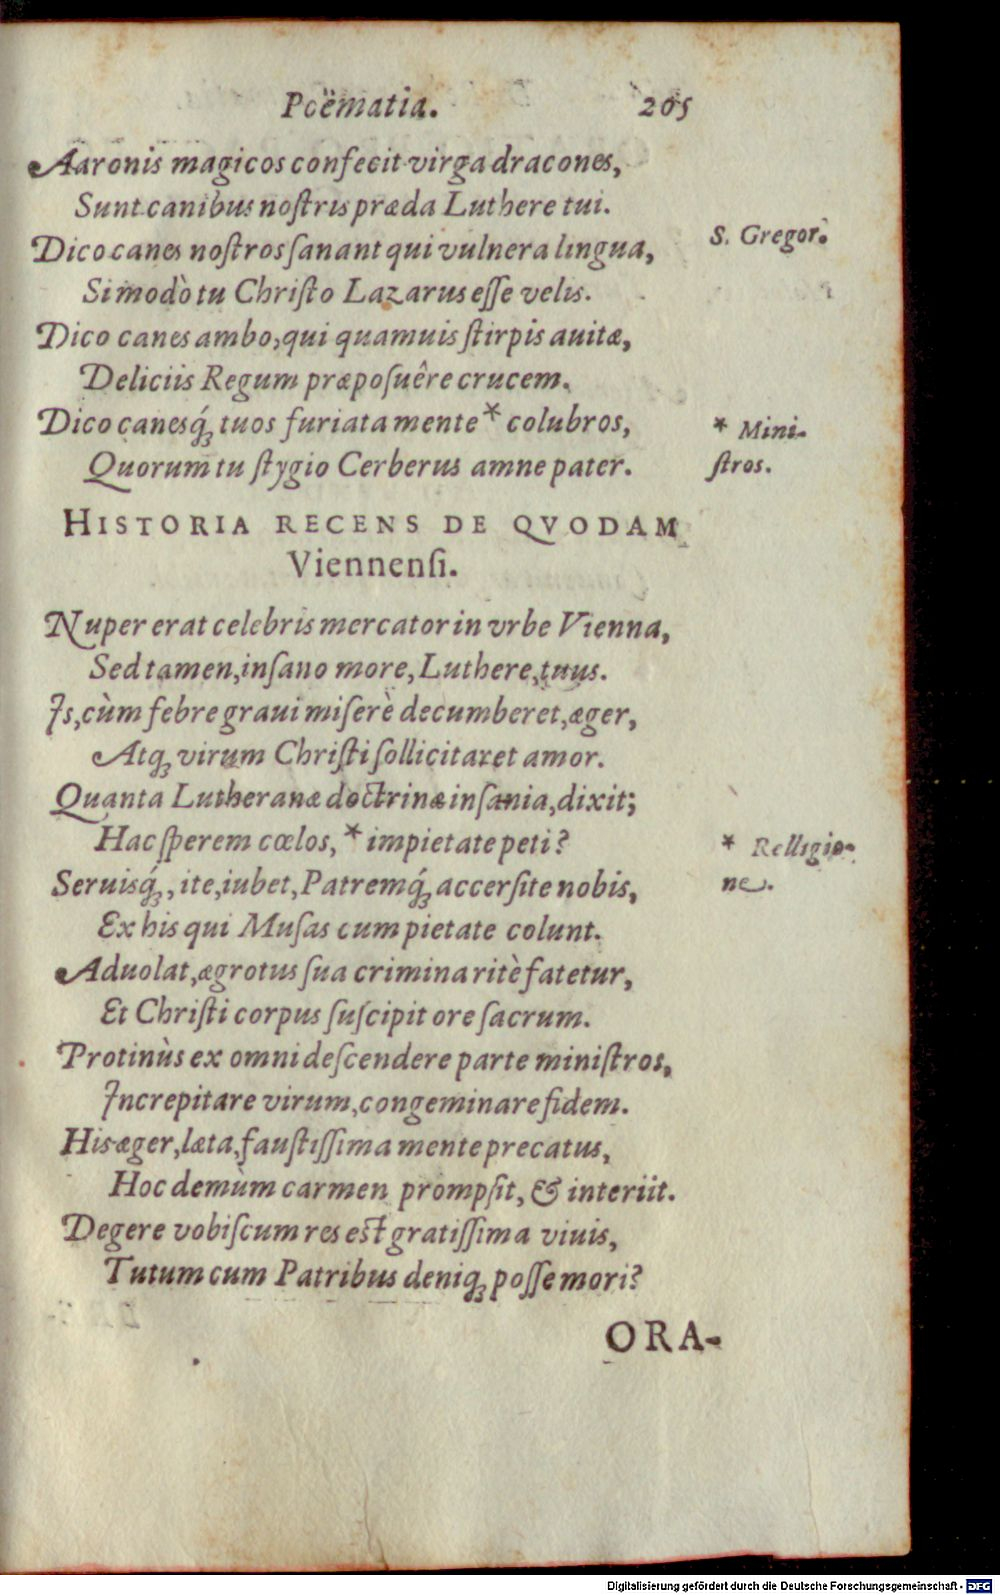 Poëmatia. 205
Aaronis magicos confecit virga dracones,
Sunt canibus noſtris præda Luthere tui.
Dico canes noſtros ſanant qui vulnera lingua,
S. Gregor.
Si modò tu Chriſto Lazarus eſſe velis.
Dico canes ambo, qui quamuis ſtirpis auitæ,
Deliciis Regum præpoſuêre crucem.
Dico canesq́ꝫ tuos furiata mente * colubros,
* Mini-
Quorum tu ſtygio Cerberus amne pater.
ſtros.
HISTORIA RECENS DE QVODAM
Viennenſi.
Nuper erat celebris mercator in vrbe Vienna,
Sed tamen, inſano more, Luthere, tuus.
Is, cùm febre graui miſerè decumberet, æger,
Atqꝫ virum Chriſti ſollicitaret amor.
Quanta Lutheranæ doctrinæ inſania, dixit;
Hac ſperem cœlos, * impietate peti?
* Relligio-
Seruisq́ꝫ, ite, iubet, Patremq́ꝫ accerſite nobis,
ne.
Ex his qui Muſas cum pietate colunt.
Aduolat, ægrotus ſua crimina ritè fatetur,
Et Chriſti corpus ſuſcipit ore ſacrum.
Protinùs ex omni deſcendere parte miniſtros,
Increpitare virum, congeminare fidem.
His æger, læta, fauſtiſſima mente precatus,
Hoc demùm carmen prompſit, & interiit.
Degere vobiſcum res eſt gratiſſima viuis,
Tutum cum Patribus deniqꝫ poſſe mori?
ORA-
Digitalisierung gefördert durch die Deutsche Forschungsgemeinschaft - DFG